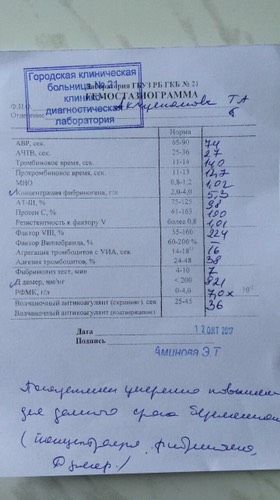 Городская клиническая
больница № 21
клинико
диагностическая
лаборатория
Лаборатория ГБУЗ РБ ГКБ № 21
ГЕМОСТАЗИОГРАММА
Ф.И.О. Т А
Отделение 6
Норма
АВР, сек. 65-90 74
АЧТВ, сек. 25-36 27
Тромбиновое время, сек. 11-14 14,0
Протромбиновое время, сек. 11-15
МНО 0,8-1,2 1,02
Концентрация фибриногена, г/л 2,0-4,0 5,3
АТ-III, % 75-125 98
Протеин С, % 61-163 100
Резистентность к фактору V более 0,8 1,01
Фактор VIII, % 55-160 224
Фактор Виллебранда, % 60-200 %
Агрегация тромбоцитов с УИА, сек. 14-18 16
Адгезия тромбоцитов, % 24-48 38
Фибринолиз тест, мин 4-10 7
Д димер, нм/мг < 200 821
РФМК, г/л 0-4,0 7,0 х 10
Волчаночный антикоагулянт (скрининг), сек. 25-45 36
Волчаночный антикоагулянт (подтверждение)
Дата 12 ОКТ 2017
Подпись
АМИНОВА Э.Т
Показатели умеренно повышены
для данного срока беременности
(концентрация фибриногена,
Д димер.)